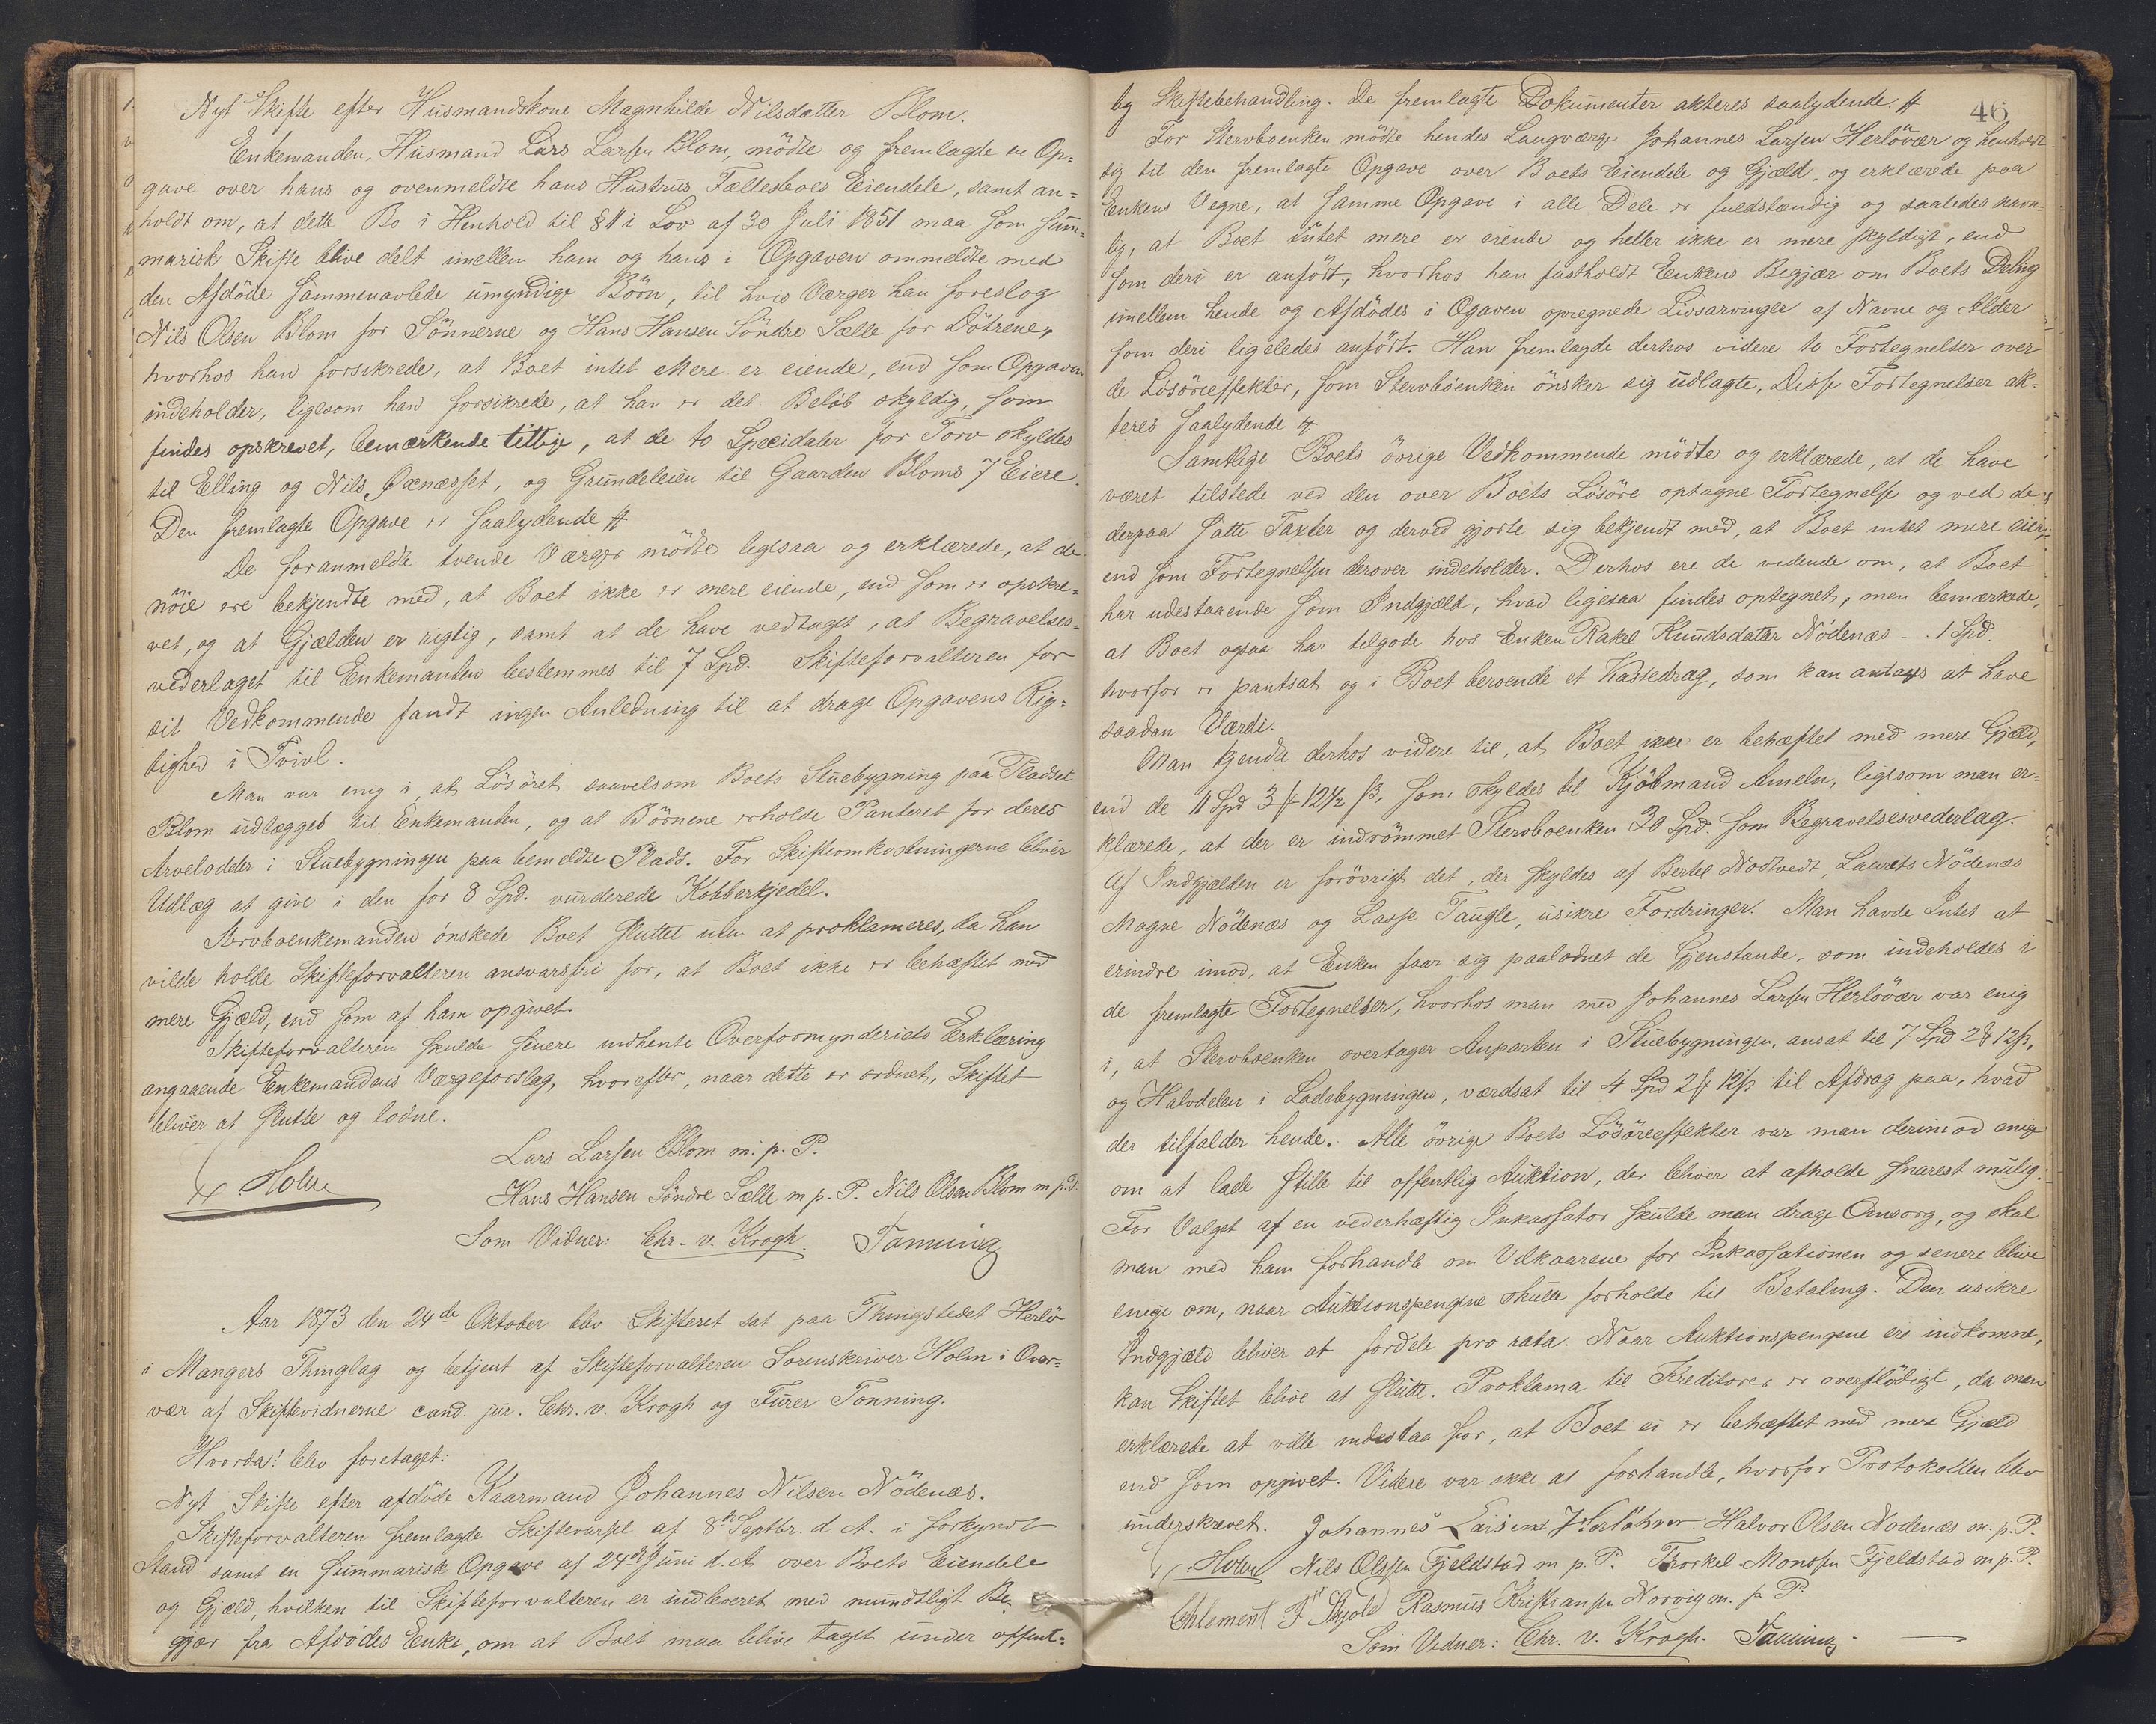 Nyt Skifte efter Husmandskone Magnhilde Nilsdatter Blom.
Enkemanden, Husmand Lars Larsen Blom, mödte og fremlagde en Op-
gave over hans og ovenmeldte hans Hustrus Fællesboes Eiendele, samt an-
holdt om, at dette Bo i Henhold til § 11 i Lov af 30 Juli 1851 maa som sum-
marisk Skifte blive delt imellem ham og hans i Opgaven ommeldte med
den Afdöde sammenavlede umyndige Börn, til hvis Værger han foreslog
Nils Olsen Blom for Sönnerne og Hans Hansen Söndre Sælle for Dötrene,
hvorhos han forsikrede, at Boet intet Mere er eiende, end som Opgaven
indeholder, ligesom han forsikrede, at han er det Belöb skyldig, som
findes opskrevet, bemærkende tillige, at de to Specidaler for Torv skyldes
til Elling og Nils, og Grundeleien til Gaarden Bloms 7 Eiere.
Den fremlagte Opgave er saalydende #
De foranmeldte tvende Værger mödte ligesaa og erklærede, at de
nöie ere bekjendte med, at Boet ikke er mere eiende, end som er opskre-
vet, og at Gjælden er rigtig, samt at de have vedtaget, at Begravelses-
vederlaget til Enkemanden bestemmes til 7 Spd. Skifteforvalteren for
sit Vedkommende fandt ingen Anledning til at drage Opgavens Rig-
tighed i Tvivl.
Man var enig i, at Lösöret saavelsom Boets Stuebygning paa Pladset
Blom udlægges til Enkemanden, og at Börnene erholde Panteret for deres
Arvelodder i Stuebygningen paa bemeldte Plads. For Skifteomkostningerne bliver
Udlæg at give i den for 8 Spd. vurderede Kobberkjedel.
Stervboenkemanden önskede Boet sluttet uden at proklameres, da han
vilde holde Skifteforvalteren ansvarsfri for, at Boet ikke er behæftet med
mere Gjæld, end som af ham opgivet.
Skifteforvalteren skulde senere indhente Overformynderiets Erklæring
angaaende Enkemandens Værgeforslag, hvorefter, naar dette er ordnet, Skiftet
bliver at slutte og lodne.
Lars Larsen Blom m. p. P.
Holm
Hans Hansen Söndre Sælle m. p. P. Nils Olsen Blom m. p. P.
Som Vidner: Chr. v. Krogh. Tonning
Aar 1873 den 24de Oktober blev Skifteret sat paa Thingstedet Herlö
i Mangers Thinglag og betjent af Skifteforvalteren Sorenskriver Holm i Over-
vær af Skiftevidnerne cand. jur. Chr. v. Krogh og Furer Tonning.
Hvorda! blev foretaget:
Nyt Skifte efter afdöde Kaarmand Johannes Nilsen Nödenæs.
Skifteforvalteren fremlagde Skiftevarsel af 8de Septbr. d. A. i forkyndt
Stand samt en summarisk Opgave af 24de Juni d. A. over Boets Eiendele
og Gjæld, hvilken til Skifteforvalteren er indleveret med mundtligt Be-
gjær fra Afdödes Enke, om at Boet maa blive taget under offent-
46
lig Skiftebehandling. De fremlagte Dokumenter akteres saalydende. #
For Stervboenken mödte hendes Laugværge Johannes Larsen Herlövær og henholdt
sig til den fremlagte Opgave over Boets Eiendele og Gjæld, og erklærede paa
Enkens Vegne, at samme Opgave i alle Dele er fuldstændig og saaledes navn-
lig, at Boet intet mere er eiende og heller ikke er mere skyldigt, end
som deri er anfört, hvorhos han fastholdt Enkens Begjær om Boets Deling
imellem hende og Afdödes i Ogaven opregnede Livsarvinger af Navne og Alder
som deri ligeledes anfört. Han fremlagde derhos videre to Fortegnelser over
de Lösöreeffekter, som Stervboenken önsker sig udlagte, Disse Fortegnelser ak-
teres saalydende #
Samtlige Boets övrige Vedkommende mödte og erklærede, at de have
været tilstede ved den over Boets Lösöre optagne Fortegnelse og ved de
derpaa satte Taxter og derved gjorte sig bekjendt med, at Boet intet mere eier,
end som Fortegnelsen derover indeholder. Derhos ere de vidende om, at Boet
har udestaaende som Indgjæld, hvad ligesaa findes optegnet, men bemærkede,
at Boet ogsaa har tilgode hos Enken Rakel Knudsdatter Nödenæs - . 1 Spd.
hvorfor er pantsat og i Boet beroende et Kastedrag, som kan antages at have
saadan Værdi.
Man kjendte derhos videre til, at Boet ikke er behæftet med mere Gjæld,
end de 11 Spd 3 ƒ 12½ ß, som skyldes til Kjöbmand Ameln, ligesom man er-
klærede, at der er indrömmet Stervboenken 30 Spd. som Begravelsesvederlag.
Af Indgjælden er forövrigt det, der skyldes af Bertel Nodtvedt, Laurits Nödenæs
Magne Nödenæs og Lasse Taugle, usikre Fordringer. Man havde Intet at
erindre imod, at Enken faar sig paalodnet de Gjenstande, som indeholdes i
de fremlagte Fortegnelser, hvorhos man med Johannes Larsen Herlövær var enig
i, at Stervboenken overtager Anparten i Stuebygningen, ansat til 7 Spd 2 ƒ 12 ß,
og Halvdelen i Ladebygningen, værdsat til 4 Spd 2 ƒ 12 ß til Afdrag paa, hvad
der tilfalder hende. Alle övrige Boets Lösöreeffekter var man derimod enige
om at lade stille til offentlig Auktion, der bliver at afholde snarest mulig.
For Valget af en vederhæftig Inkassator skulde man drage Omsorg, og skal
man med ham forhandle om Vilkaarene for Inkassationen og senere blive
enige om, naar Auktionspengene skulle forholde til Betaling. Den usikre
Indgjæld bliver at fordele pro rata. Naar Auktionspengene ere indkomne,
kan Skiftet blive at slutte. Proklama til Kreditorer er overflödigt, da man
erklærede at ville indestaa for, at Boet ei er behæftet med mere Gjæld
end som opgivet. Videre var ikke at forhandle, hvorfor Protokollen blev
underskrevet. Johannes Larsen Halvor Olsen Nodenæs m. p. P.
Holm Nils Olssen Fjeldstad m. p. P. Thorkel Monssen Fjeldstad m. p. P.
Skjold Rasmus Kristiansen Norvig m. p. P
Som Vidner: Chr. v. Krogh. Tonning